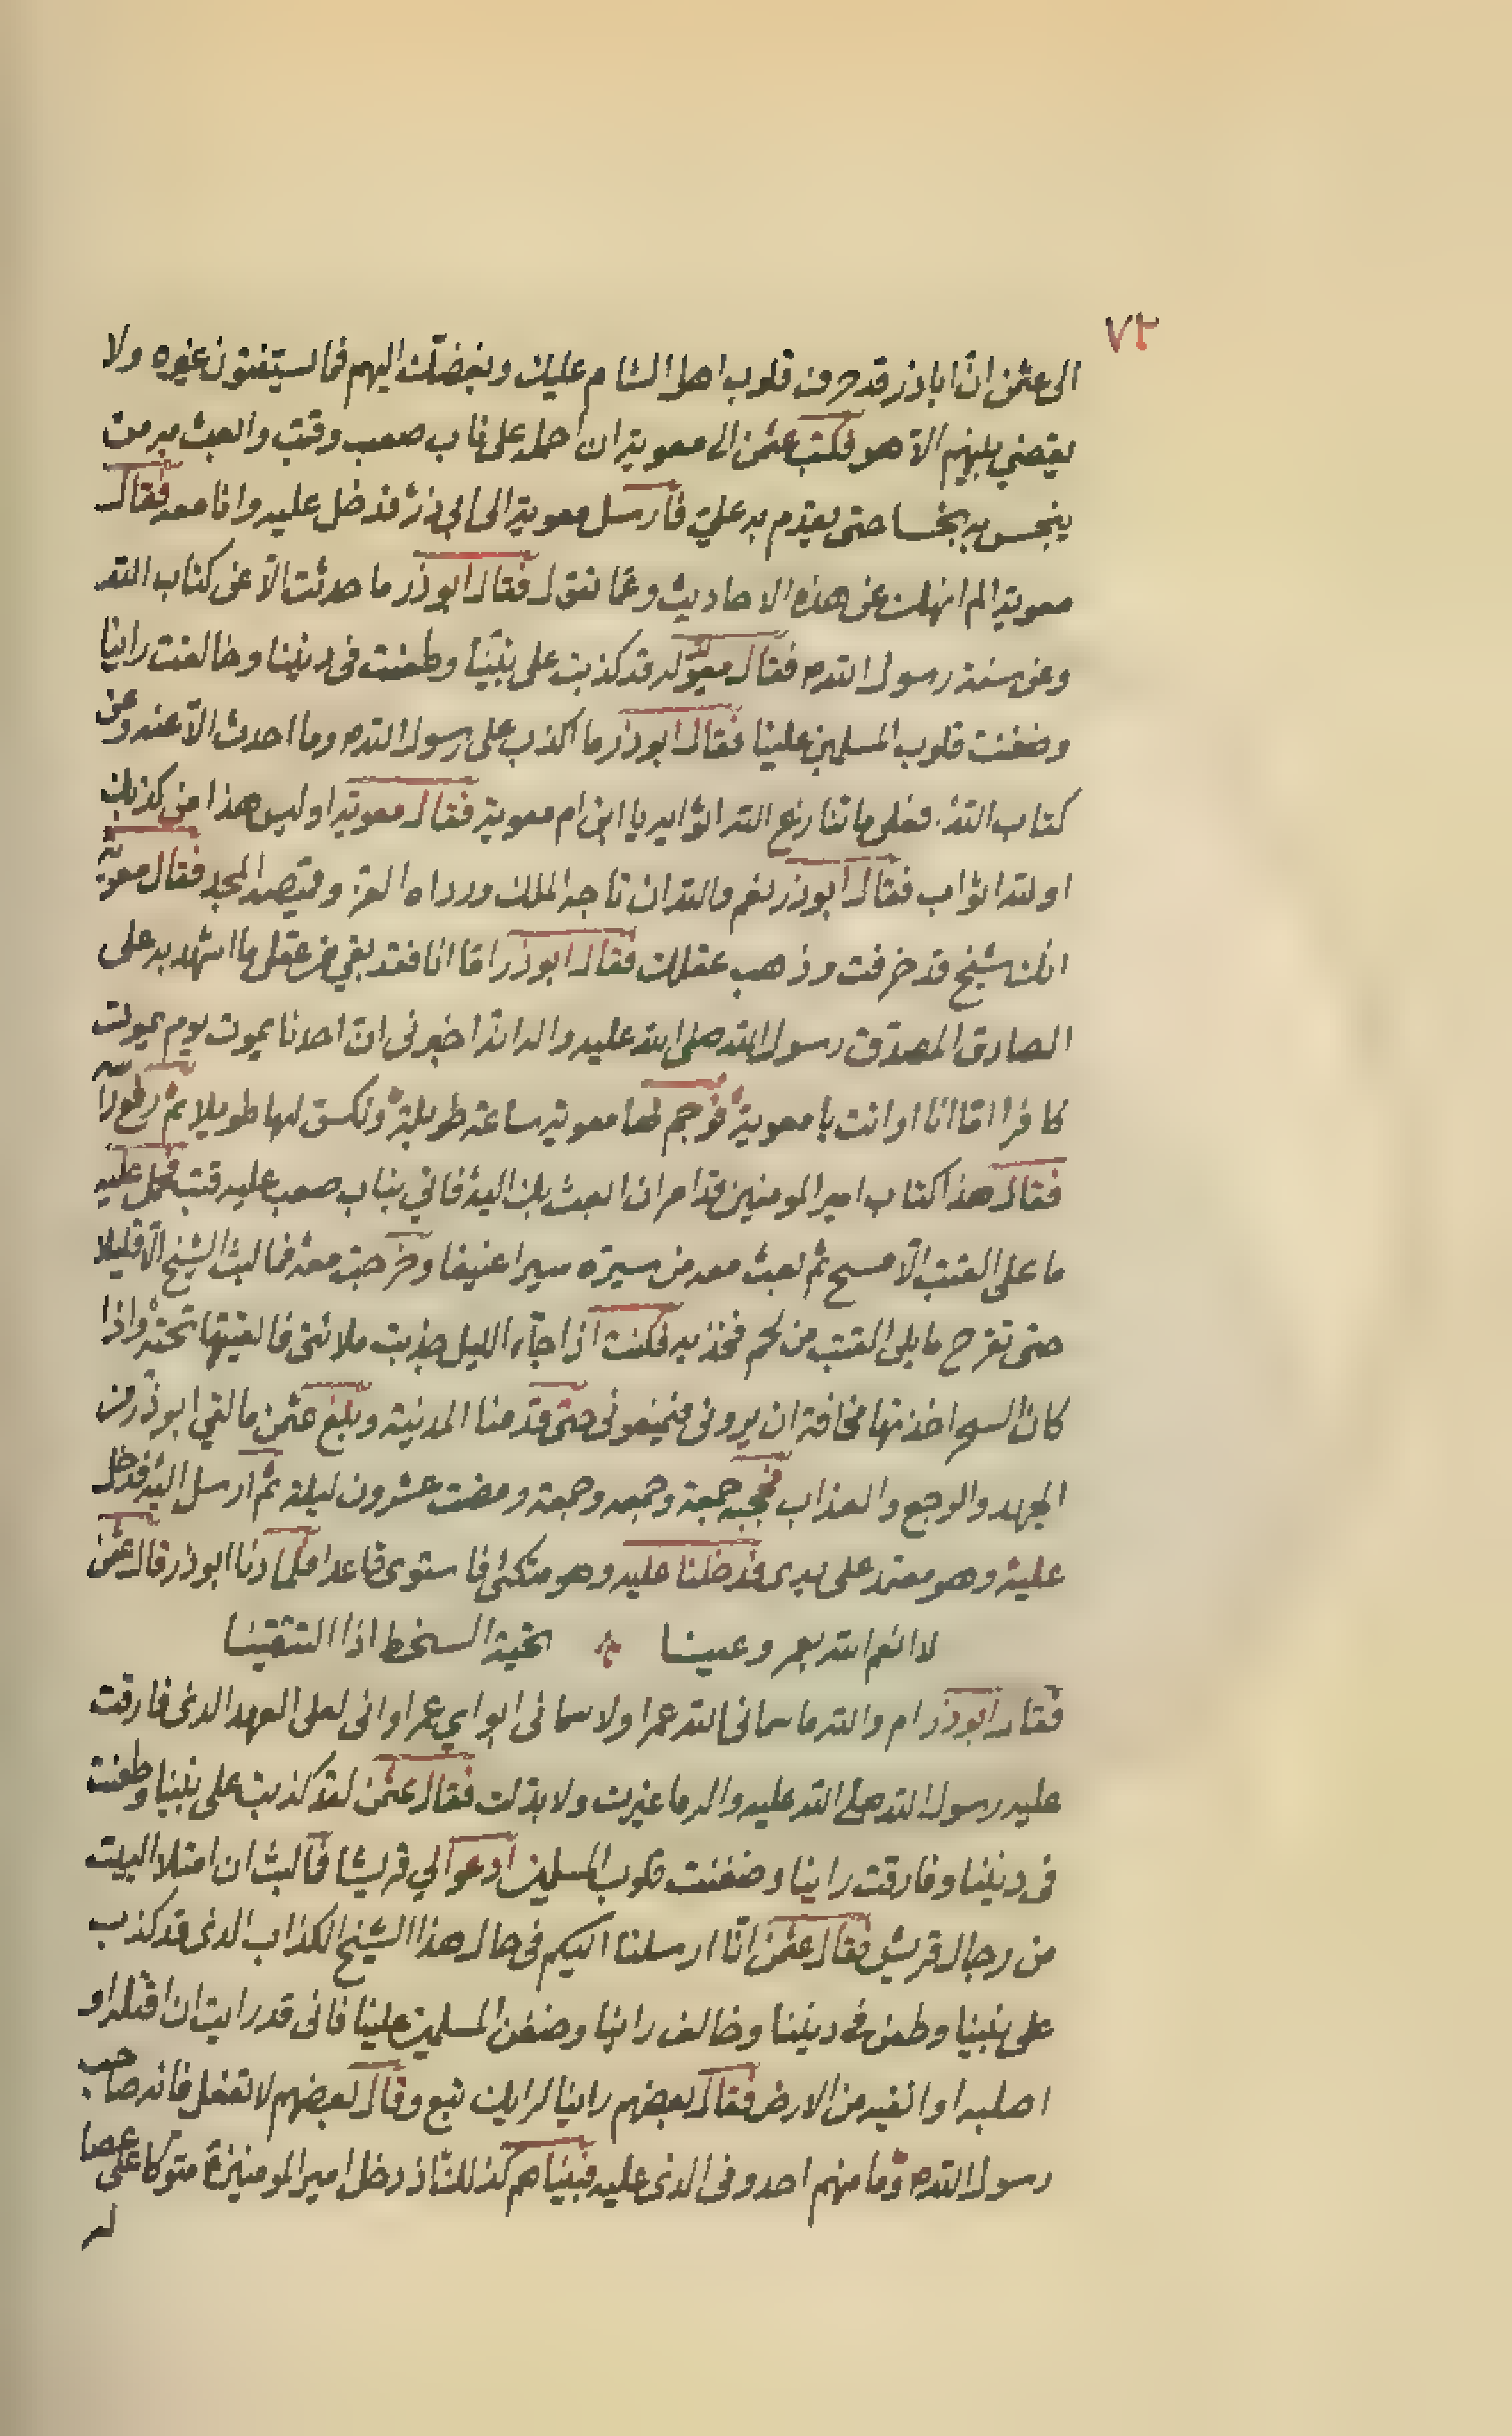 ٧٢
الى عثمن ان اباذر قد حرف قلوب اهل الشام عليك وبغضك اليهم فما يستفتون غيره ولا
يقضي بينهم الا هو فكتب عثمن الى معوية ان احمله على ناب صعب وقتب وابعث به من
ينجس به نجسا حتى يقدم به علي فارسل معوية الى ابي ذر فدخل عليه وانا معه فقال
معوية الم انهك عن هذه الاحاديث وعما تقول فقال ابوذر ما حدثت الا عن كتاب الله
وعن سنة رسول الله ص فقال معوية له قد كذبت على نبينا وطعنت فى ديننا وخالفت راينا
وضغنت قلوب المسلمين علينا فقال ابوذر ما اكذب على رسول الله ص وما احدث الا عنه وعن
كتاب الله فعلى ما تنازع الله اثوابه يا ابن ام معوية فقال معوية اوليس هذا من كذبك
اولله اثواب فقال ابوذر نعم والله ان تاجه الملك ورداه العز وقميصه المجد فقال معوية
انك شيخ قد خرفت وذهب عقلك فقال ابوذر اما انا فقد بقي من عقلى ما اشهد به على
الصادق المصدق رسول الله صلى الله عليه واله انه اخبرنى ان احدنا يموت يوم يموت
كافرا اما انا او انت يا معوية فوجم لها معوية ساعة طويلة ونكس لها طويلا ثم رفع راسه
فقال هذا كتاب امير المومنين قد امر ان ابعث بك اليه فاتي بناب صعب عليه قتب فحمل عليه
ما على القتب الا مسح ثم بعث معه من سيره سيرا عنيفا وخرجت معه فما لبث الشيخ الا قليلا
حتى تقرح ما يلى القتب من لحم فخذيه فكنت اذا جآء الليل جذبت ملائتى فالقيتها تحته واذا
كان السحر اخذتها مخافة ان يرونى فيمنعونى حتى قدمنا المدينة وبلغ عثمن ما لقي ابوذر من
الجهد والوجع والعذاب فحجبه جمعة وجمعه وجمعة ومضت عشرون ليلة ثم ارسل اليه فدخل
عليه وهو معتمد على يدى فدخلنا عليه وهو متكئ فاستوى قاعدا فلما دنا ابوذر قال عثمن
لا انعم الله بعمرو عينا ۞ تحية السخط اذا التقينا
فقال ابوذر ام والله ما سمانى الله عمرا ولا سمانى ابواي عمرا وانى لعلى العهد الذى فارقت
عليه رسول الله صلى الله عليه واله ما غيرت ولا بدلت فقال عثمن لقد كذبت على نبينا وطعنت
فى ديننا وفارقت راينا وضغنت قلوب المسلمين ادعوا لي قريشا فما لبث ان امتلا البيت
من رجال قريش فقال عثمن انا ارسلنا اليكم فى حال هذا الشيخ الكذاب الذى قد كذب
على نبينا وطعن فى ديننا وخالف راينا وضغن المسلمين علينا فانى قد رايت ان اقتله او
اصلبه او انفيه من الارض فقال بعضهم راينا لرايك تبع وقال بعضهم لا تفعل فانه صاحب
رسول الله ص وما منهم احد وفى الذى عليه فبينا هم كذلك اذ دخل امير المومنين ع متوكا على عصا
له